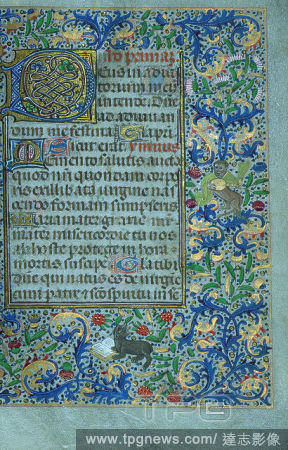 ad primam
Deus in adiu
torium meū
intende Dñe
ad adiuuan
dum me festina Gla pri
Sicut erat Ymnus
Memento salutis auctor
quod nri quondam corpo
ris ex illibata uirgine nas
cendo formam sumpseris
Maria mater gratie
mater misericordie tu nos
ab hoste protege in hora
mortis suscipe Gla tibi
dñe qui natus es de uirgie
cum patre et sco spiritu in se
TPG
www.tpgnews.com / 達志影像